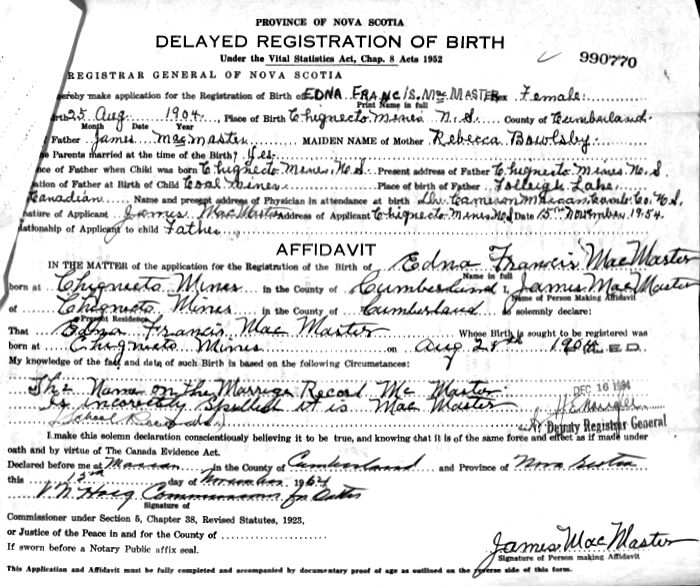 PROVINCE OF NOVA SCOTIA
DELAYED REGISTRATION OF BIRTH
Under the Vital Statistics Act, Chap. 8 Acts 1952
990770
REGISTRAR GENERAL OF NOVA SCOTIA
hereby make application for the Registration of Birth of EDNA FRANCIS. Mac MASTER Sex Female.
Print Name in full
25 Aug 1904. Place of Birth Chignecto Mines N.S. County of Cumberland.
Month Date Year
Father James MacMaster MAIDEN NAME of Mother Rebecca Bowlsby.
Parents married at the time of the Birth? Yes.
of Father when Child was born Chignecto Mines, N.S. Present address of Father Chignecto Mines N.S.
of Father at Birth of Child Coal Miner Place of birth of Father Folleigh Lake,
Canadian Name and present address of Physician in attendance at birth Dr. Cameron Maccan Cumb. Co. N.S.
of Applicant James MacMaster Address of Applicant Chignecto Mines N.S Date 15th November 1954.
of Applicant to child Father.
AFFIDAVIT
IN THE MATTER of the application for the Registration of the Birth of Edna Francis MacMaster
Name in full
born at Chignecto Mines in the County of Cumberland I, James MacMaster
Name of Person Making Affidavit
of Chignecto Mines in the County of Cumberland do solemnly declare:
Present Residence
That Edna Francis Mac Master Whose Birth is sought to be registered was
born at Chignecto Mines on Aug 25th 1904 A.D.
My knowledge of the fact and date of such Birth is based on the following Circumstances:
The Name on the Marrige Record Mc Master
Is incorretly Spelled it is Mac Master
DEC 16 1954
(School Records)
Deputy Registrar General
I make this solemn declaration conscientiously believing it to be true, and knowing that it is of the same force and effect as if made under
oath and by virtue of The Canada Evidence Act.
Declared before me at Maccan in the County of Cumberland and Province of Nova Scotia
this 15th day of November 1954
Commissioner for Oaths
Signature of
Commissioner under Section 5, Chapter 38, Revised Statutes, 1923,
or Justice of the Peace in and for the County of
If sworn before a Notary Public affix seal.
James MacMaster
Signature of Person making Affidavit
This Application and Affidavit must be fully completed and accompanied by documentary proof of age as outlined on the reverse side of this form.